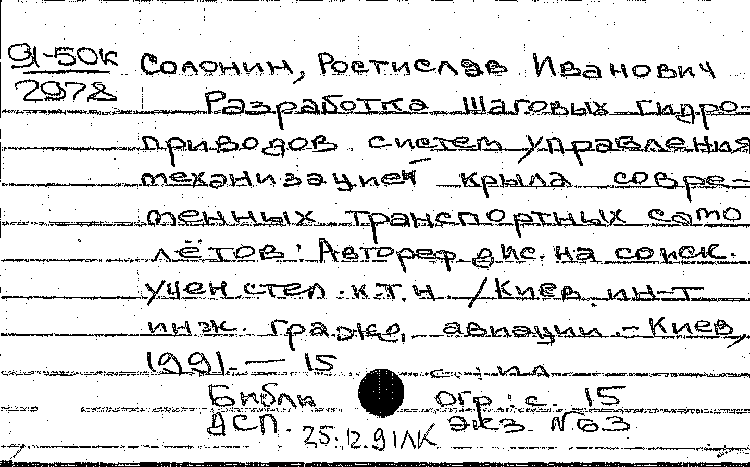 91-50к Солонин, Ростислав Иванович
2978 Разработка шаговых гидро-
приводов систем управления
механизацией крыла совре-
менных транспортных само
лётов: Автореф дис. на соиск.
учен степ. к.т.н /Киев. ин-т
инж. гражд. авиации. - Киев,
1991. — 15 с.: ил
Библи огр.: с. 15
ДСП. экз. №63
25.12.91ЛК